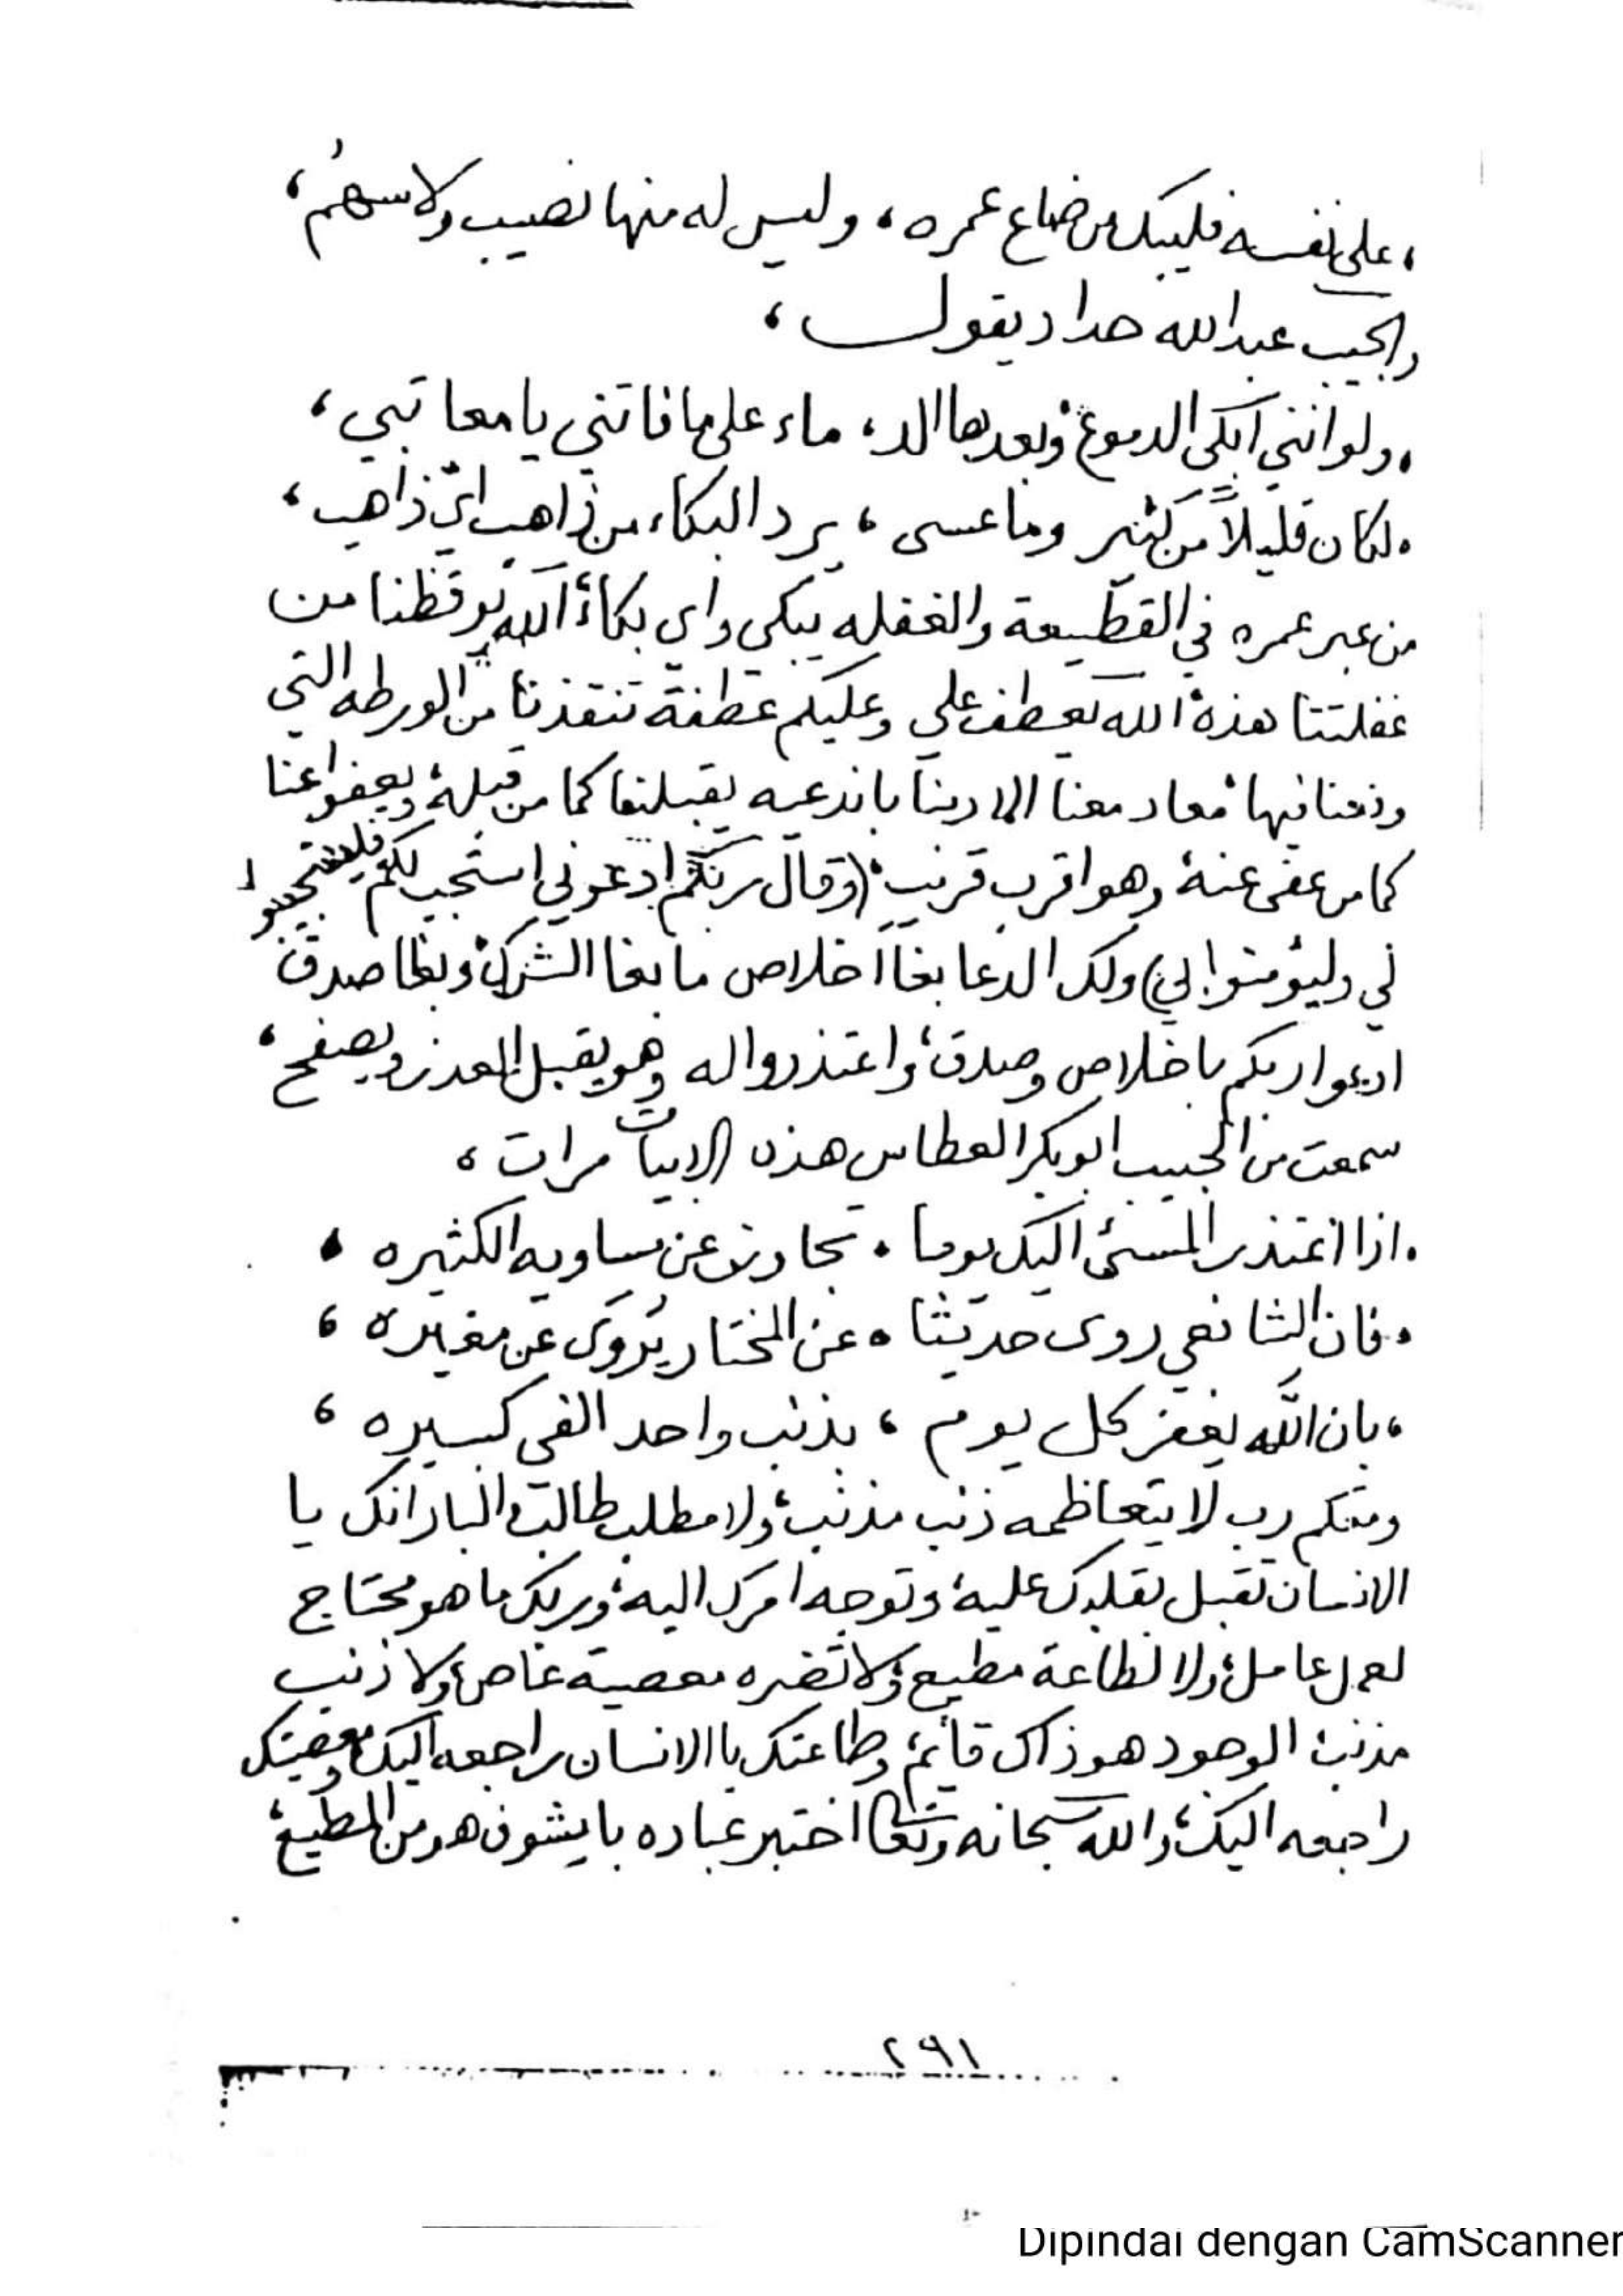 ، على نفسه فليبك من ضاع عمره ، وليس له منها نصيب ولا سهمُ ،
والحبيب عبدالله حداد يقول ،
، ولو انني ابكي الدموع وبعدها الد ، ماء على ما فاتني يا معاتبي ،
، لكان قليلاً من كثير وما عسى ، يرد البكاء من ذاهب ايّ ذاهب ،
من عبر عمره في القطيعة والغفله يبكي واي بكاء، الله يوقظنا من
غفلتنا هذه، الله يعطف علي وعليكم عطفة تنقذنا من الورطه التي
وقعنا فيها، معاد معنا الا ربنا باندعيه يقبلنا كما من قبله، ويعفوا عنا
كما من عفى عنه، وهو اقرب قريب، (وقال ربكم ادعوني استجب لكم فليستجيبوا
لي وليؤمنوا بي) ولكن الدعا بغا اخلاص ما بغا الشرك، وبغا صدق
ادعوا ربكم باخلاص وصدق، واعتذروا له وهو يقبل العذر ويصفح ،
سمعت من الحبيب ابوبكر العطاس هذه الابيات مرات ،
، اذا اعتذر المسئ اليك يوما ، تجاوز عن مساويه الكثيره ،
، فان الشافعي روى حديثا ، عن المختار يُروى عن مغيره ،
، بان الله يغفر كل يوم ، بذنب واحد الفي كبيره ،
ومعكم رب لا يتعاظمه ذنب مذنب، ولا مطلب طالب، انك يا
الانسان تقبل بقلبك عليه، وتوجه امرك اليه، وربك ما هو محتاج
لعمل عامل، ولا لطاعة مطيع، ولا تضره معصية عاص، ولا ذنب
مذنب، الوجود هو ذاك قائم، وطاعتك يا الانسان راجعه اليك، ومعصيتك
راجعه اليك، والله سبحانه وتعالى اختبر عباده با يشوف هو من المطيع،
٢٩١
Dipindai dengan CamScanner